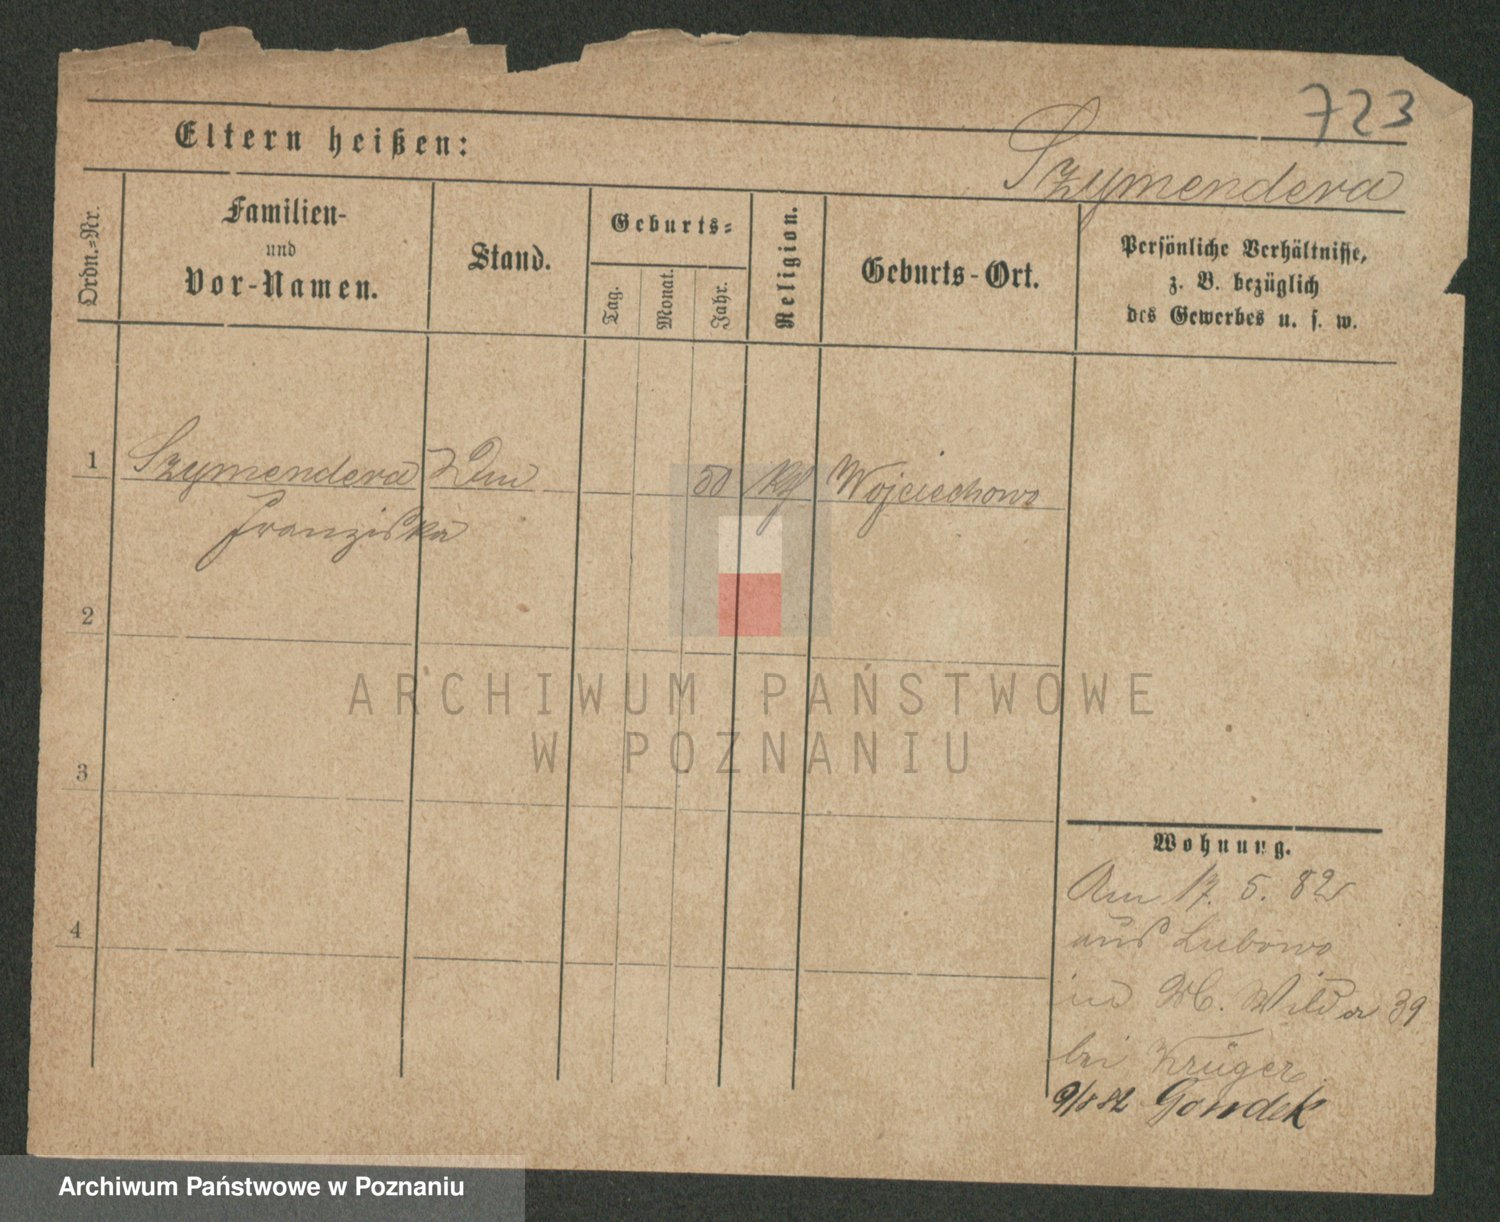 723
Eltern heißen:
Szymendera
Ordn.=Nr.
Familien-
und
Vor-Namen.
Stand.
Geburts=
Tag.
Monat.
Jahr.
Religion.
Geburts-Ort.
Persönliche Verhältnisse,
z. B. bezüglich
des Gewerbes u. s. w.
1 Szymendera 50 Wojciechowo
Franziska
2
3
4
ARCHIWUM PAŃSTWOWE
W POZNANIU
Wohnung.
Am 17. 5. 82
aus Lubowo
in Wilda 39
bei Krüger
9/8 82 Gondek
Archiwum Państwowe w Poznaniu